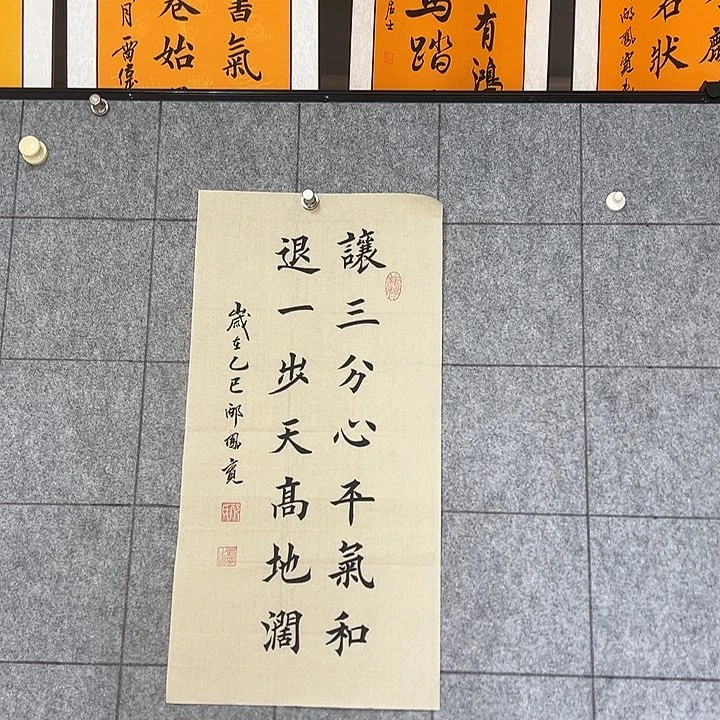 讓三分心平氣和
退一步天高地濶
歲在乙巳邴鳳寬
有鴻
馬踏
居士
書氣
卷始
月
若狀
邴鳳寬